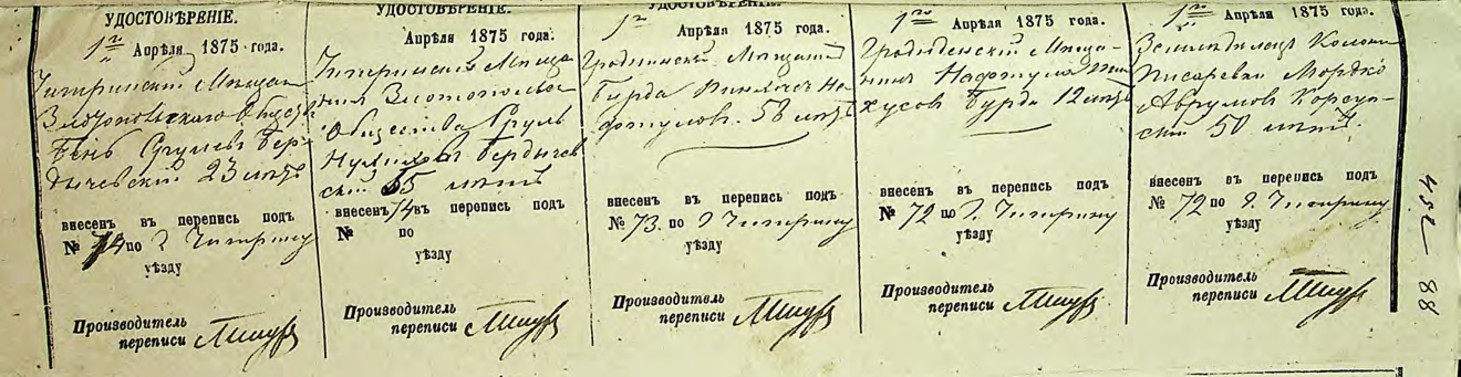 УДОСТОВѢРЕНІЕ.
1го Апрѣля 1875 года.
Чигиринскій Мѣщан
Златопольскаго Общест
Бень Срулевъ Бер-
дычевскій 23 лѣтъ
внесенъ въ перепись подъ
№ 74 по г. Чигирину
уѣзду
Производитель
переписи
УДОСТОВѢРЕНІЕ.
Апрѣля 1875 года.
Чигиринскій Мѣща
нинъ Златопольск
Общества Сруль
Бердычев
скій 55 лѣтъ
внесенъ 74 въ перепись подъ
№ по
уѣзду
Производитель
переписи
УДОСТОВѢРЕНІЕ.
1го Апрѣля 1875 года.
Гродненскій Мѣщанин
Бурда Пинхасъ На-
фтуловъ. 58 лѣтъ
внесенъ въ перепись подъ
№ 73. по г Чигирину
уѣзду
Производитель
переписи
1го Апрѣля 1875 года.
Гродненскій Мѣща-
нинъ Нафтула Пин-
хусов Бурда 12 лѣтъ
внесенъ въ перепись подъ
№ 72 по г. Чигирину
уѣзду
Производитель
переписи
1го Апрѣля 1875 года.
Земледѣлецъ Колоніи
Писаревки Мордко
Аврумов Корсун-
скій 50 лѣтъ.
внесенъ въ перепись подъ
№ 72 по г. Чигирину
уѣзду
Производитель
переписи
88